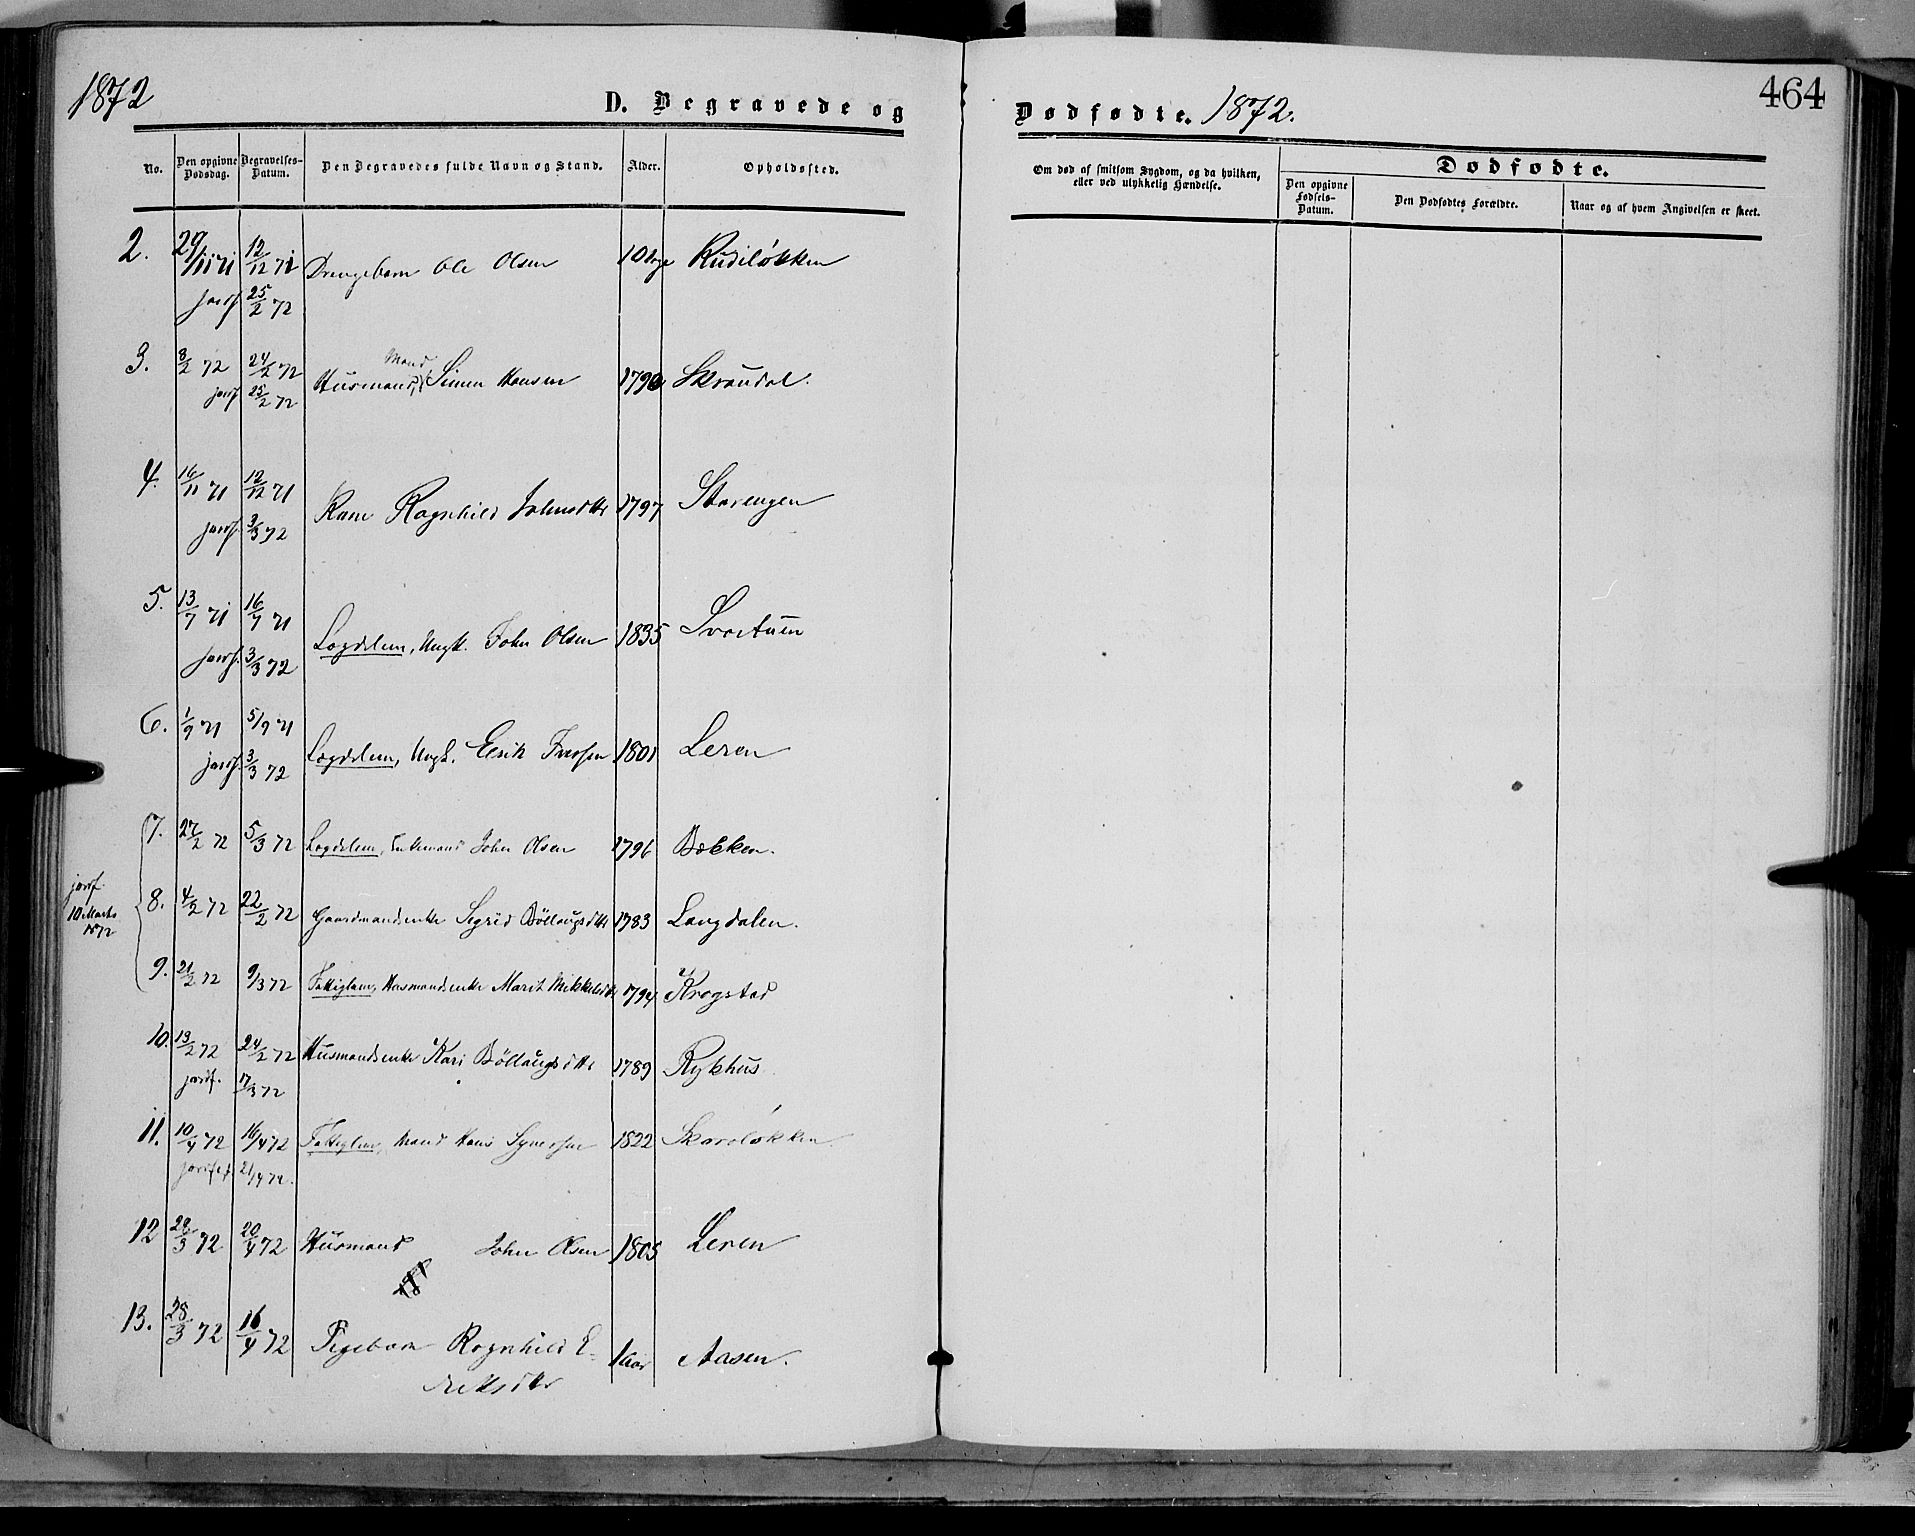 1872
D. Begravede og
Dødfødte. 1872.
464
No.
Den opgivne Dødsdag.
Begravelses-Datum.
Den Begravedes fulde Navn og Stand.
Alder.
Opholdssted.
Om død af smitsom Sygdom, og da hvilken,
eller ved ulykkelig Hændelse.
Dødfødte.
Den opgivne Fødsels-Datum.
Den Dødfødtes Forældre.
Naar og af hvem Angivelsen er skeet.
2. 29/11 71 12/12 71 Drengebarn Ole Olsen 10 Rudiløkken
jordf. 25/2 72
3. 8/2 72 24/2 72 Husmand, Mand Simen Hansen 1790 Skrøudal.
jordf. 25/2 72
4. 16/11 71 12/12 71 Kone Ragnhild Johnsdtr 1797 Storengen
jordf. 3/3 72
5. 13/7 71 16/7 71 Lægdslem, Ungk. John Olsen 1835 Svartuen
jordf. 3/3 72
6. 1/9 71 5/9 71 Lægdslem, Ungk. Erik Iversen 1801 Leren
jordf. 3/3 72
7. 27/2 72 5/3 72 Lægdslem, Enkemand John Olsen 1796 Bækken.
jordf. 10 Marts 1872
8. 4/2 72 22/2 72 Gaardmandsenke Sigrid Böllaugsdtr 1783 Langdalen.
9. 21/2 72 9/3 72 Fattiglem, Husmandsenke Marit Mikkelsdtr 1794 Krogstad
10. 13/2 72 24/2 72 Husmandsenke Kari Böllaugsdtr 1789 Rykhus
jordf. 17/3 72
11. 10/4 72 16/4 72 Fattiglem, Mand Hans Syversen 1822 Skaroløkken
jordf. 21/4 72.
12 29/3 72 20/4 72 Husmand John Olsen 1805 Leren
13. 28/3 72 16/4 72 Pigebarn Ragnhild E-
riksdtr 1 Aar Aasen.